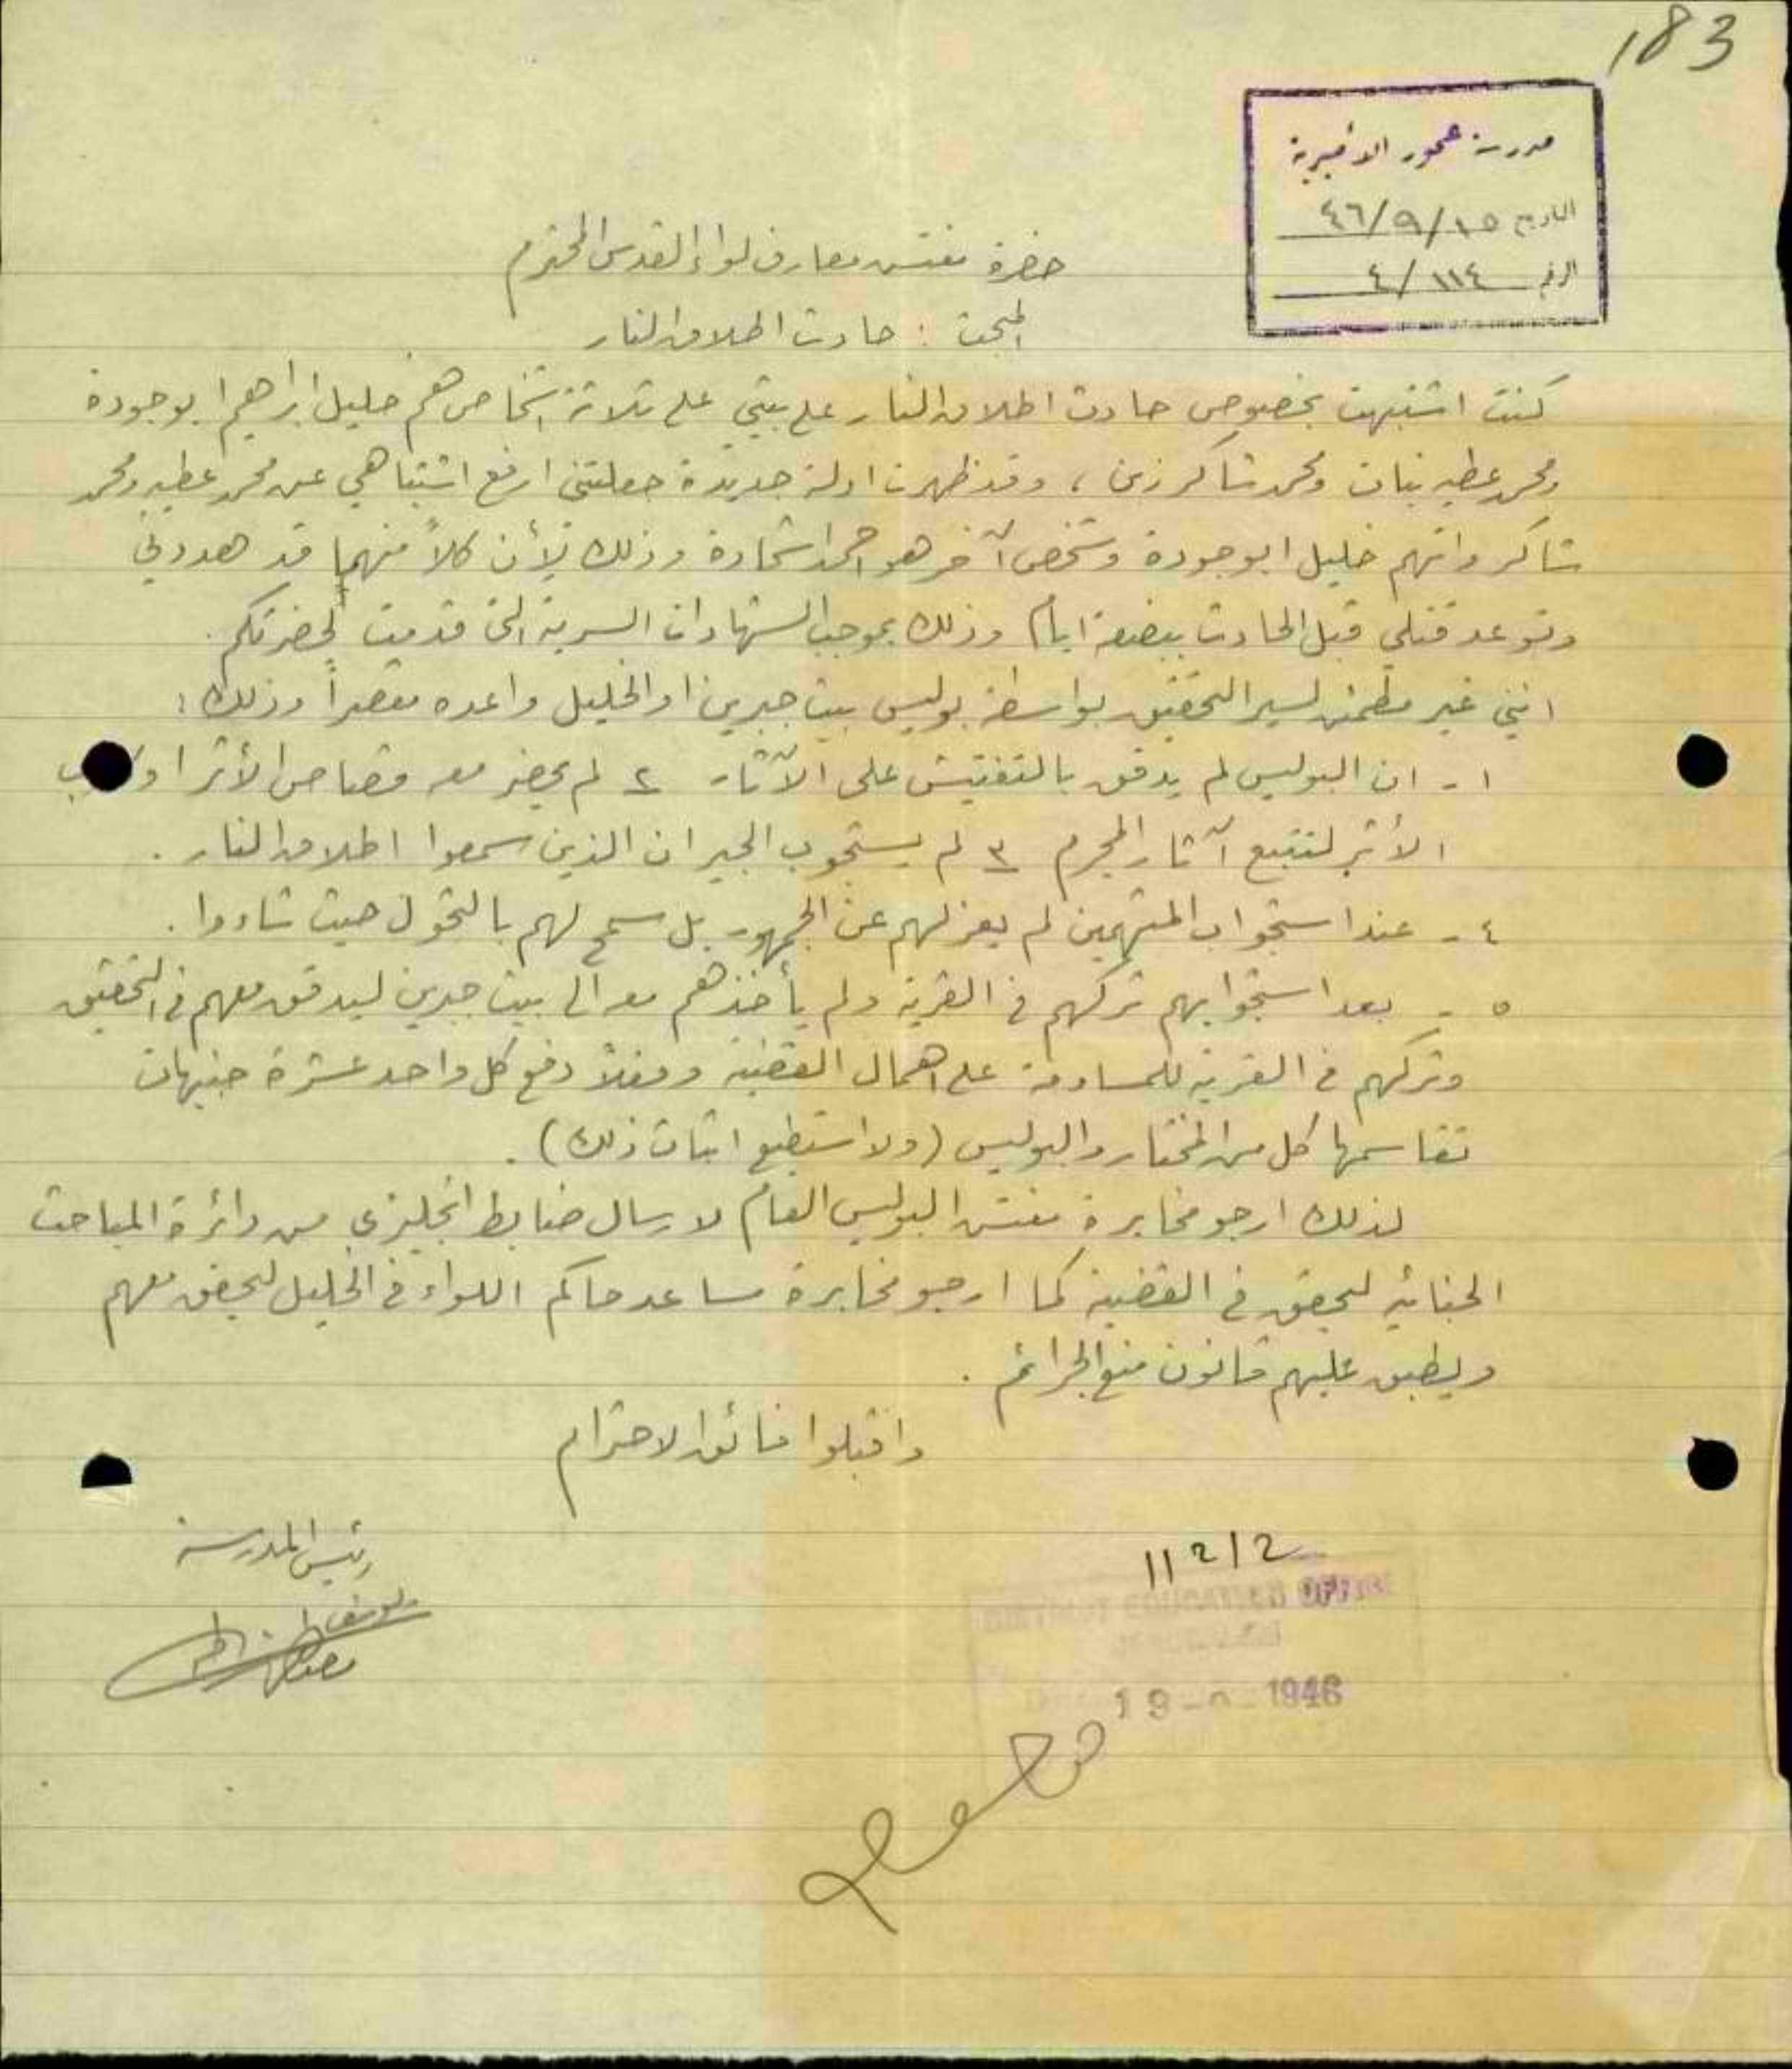 183
مدرسة عجور الأميرية
التاريخ ١٥/٩/٤٦
الرقم ٤/١١٤
حضرة مفتش معارف لواء القدس المحترم
المبحث : حادث اطلاق النار
كنت اشتبهت بخصوص حادث اطلاق النار على بيتي على ثلاثة اشخاص هم خليل ابراهيم ابو جودة
ومحمد عطيه بنات ومحمد شاكر زين ، وقد ظهرت ادلة جديدة جعلتني ارفع اشتباهي عن محمد عطيه ومحمد
شاكر واتهم خليل ابو جودة وشخص آخر هو احمد اشحادة وذلك لأن كلاً منهما قد هددني
وتوعد قتلي قبل الحادث ببضعة ايام وذلك بموجب الشهادات السرية التي قدمت لحضرتكم .
انني غير مطمئن لسير التحقيق بواسطة بوليس بيت جبرين او الخليل واعده مقصراً وذلك :
١ - ان البوليس لم يدقق بالتفتيش على الآثار ٢ لم يحضر معه قصاص الأثر او
الأثر لتتبع آثار المجرم ٣ لم يستجوب الجيران الذين سمعوا اطلاق النار .
٤ - عند استجواب المتهمين لم يعزلهم عن الجمهور بل سمح لهم بالتجول حيث شاءوا .
٥ - بعد استجوابهم تركهم في القرية ولم يأخذهم معه الى بيت جبرين ليدقق معهم في التحقيق
وتركهم في القرية للمساومة على اهمال القضية وفعلاً دفع كل واحد عشرة جنيهات
تقاسمها كل من المختار والبوليس (ولا استطيع اثبات ذلك) .
لذلك ارجو مخابرة مفتش البوليس العام لارسال ضابط انجليزي من دائرة المباحث
الجنائية ليحقق في القضية كما ارجو مخابرة مساعد حاكم اللواء في الخليل ليحقق معهم
ويطبق عليهم قانون منع الجرائم .
واقبلوا فائق الاحترام
رئيس المدرسة
11212
DISTRICT EDUCATION OFFICE
JERUSALEM
19 - 9 - 1946